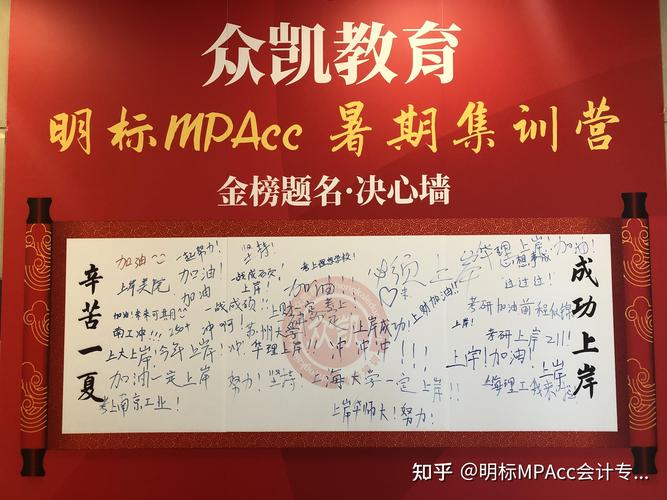 众凯教育
明标MPAcc 暑期集训营
金榜题名·决心墙
辛苦一夏
加油
一起努力!
坚持
加油
考上理想学校!
上岸美院
加油
一战成硕!
上岸!
加油!!!
必须上岸
华理上岸!
加油!
过过过!
加油
一战成硕!!
上财
上财加油!!
考研加油前程似锦
南工冲!!! 250+
冲啊!
苏州大学
上岸成功!
上岸!
考研上岸211!
上大上岸!今年上岸!冲!
华理上岸!!!
冲冲冲!!!
上岸!加油!
上岸
加油一定上岸
努力!
上海大学一定上岸!!
上海理工我来
考上南京工业!
上岸华师大!努力!
成功上岸
知乎 @明标MPAcc会计专...